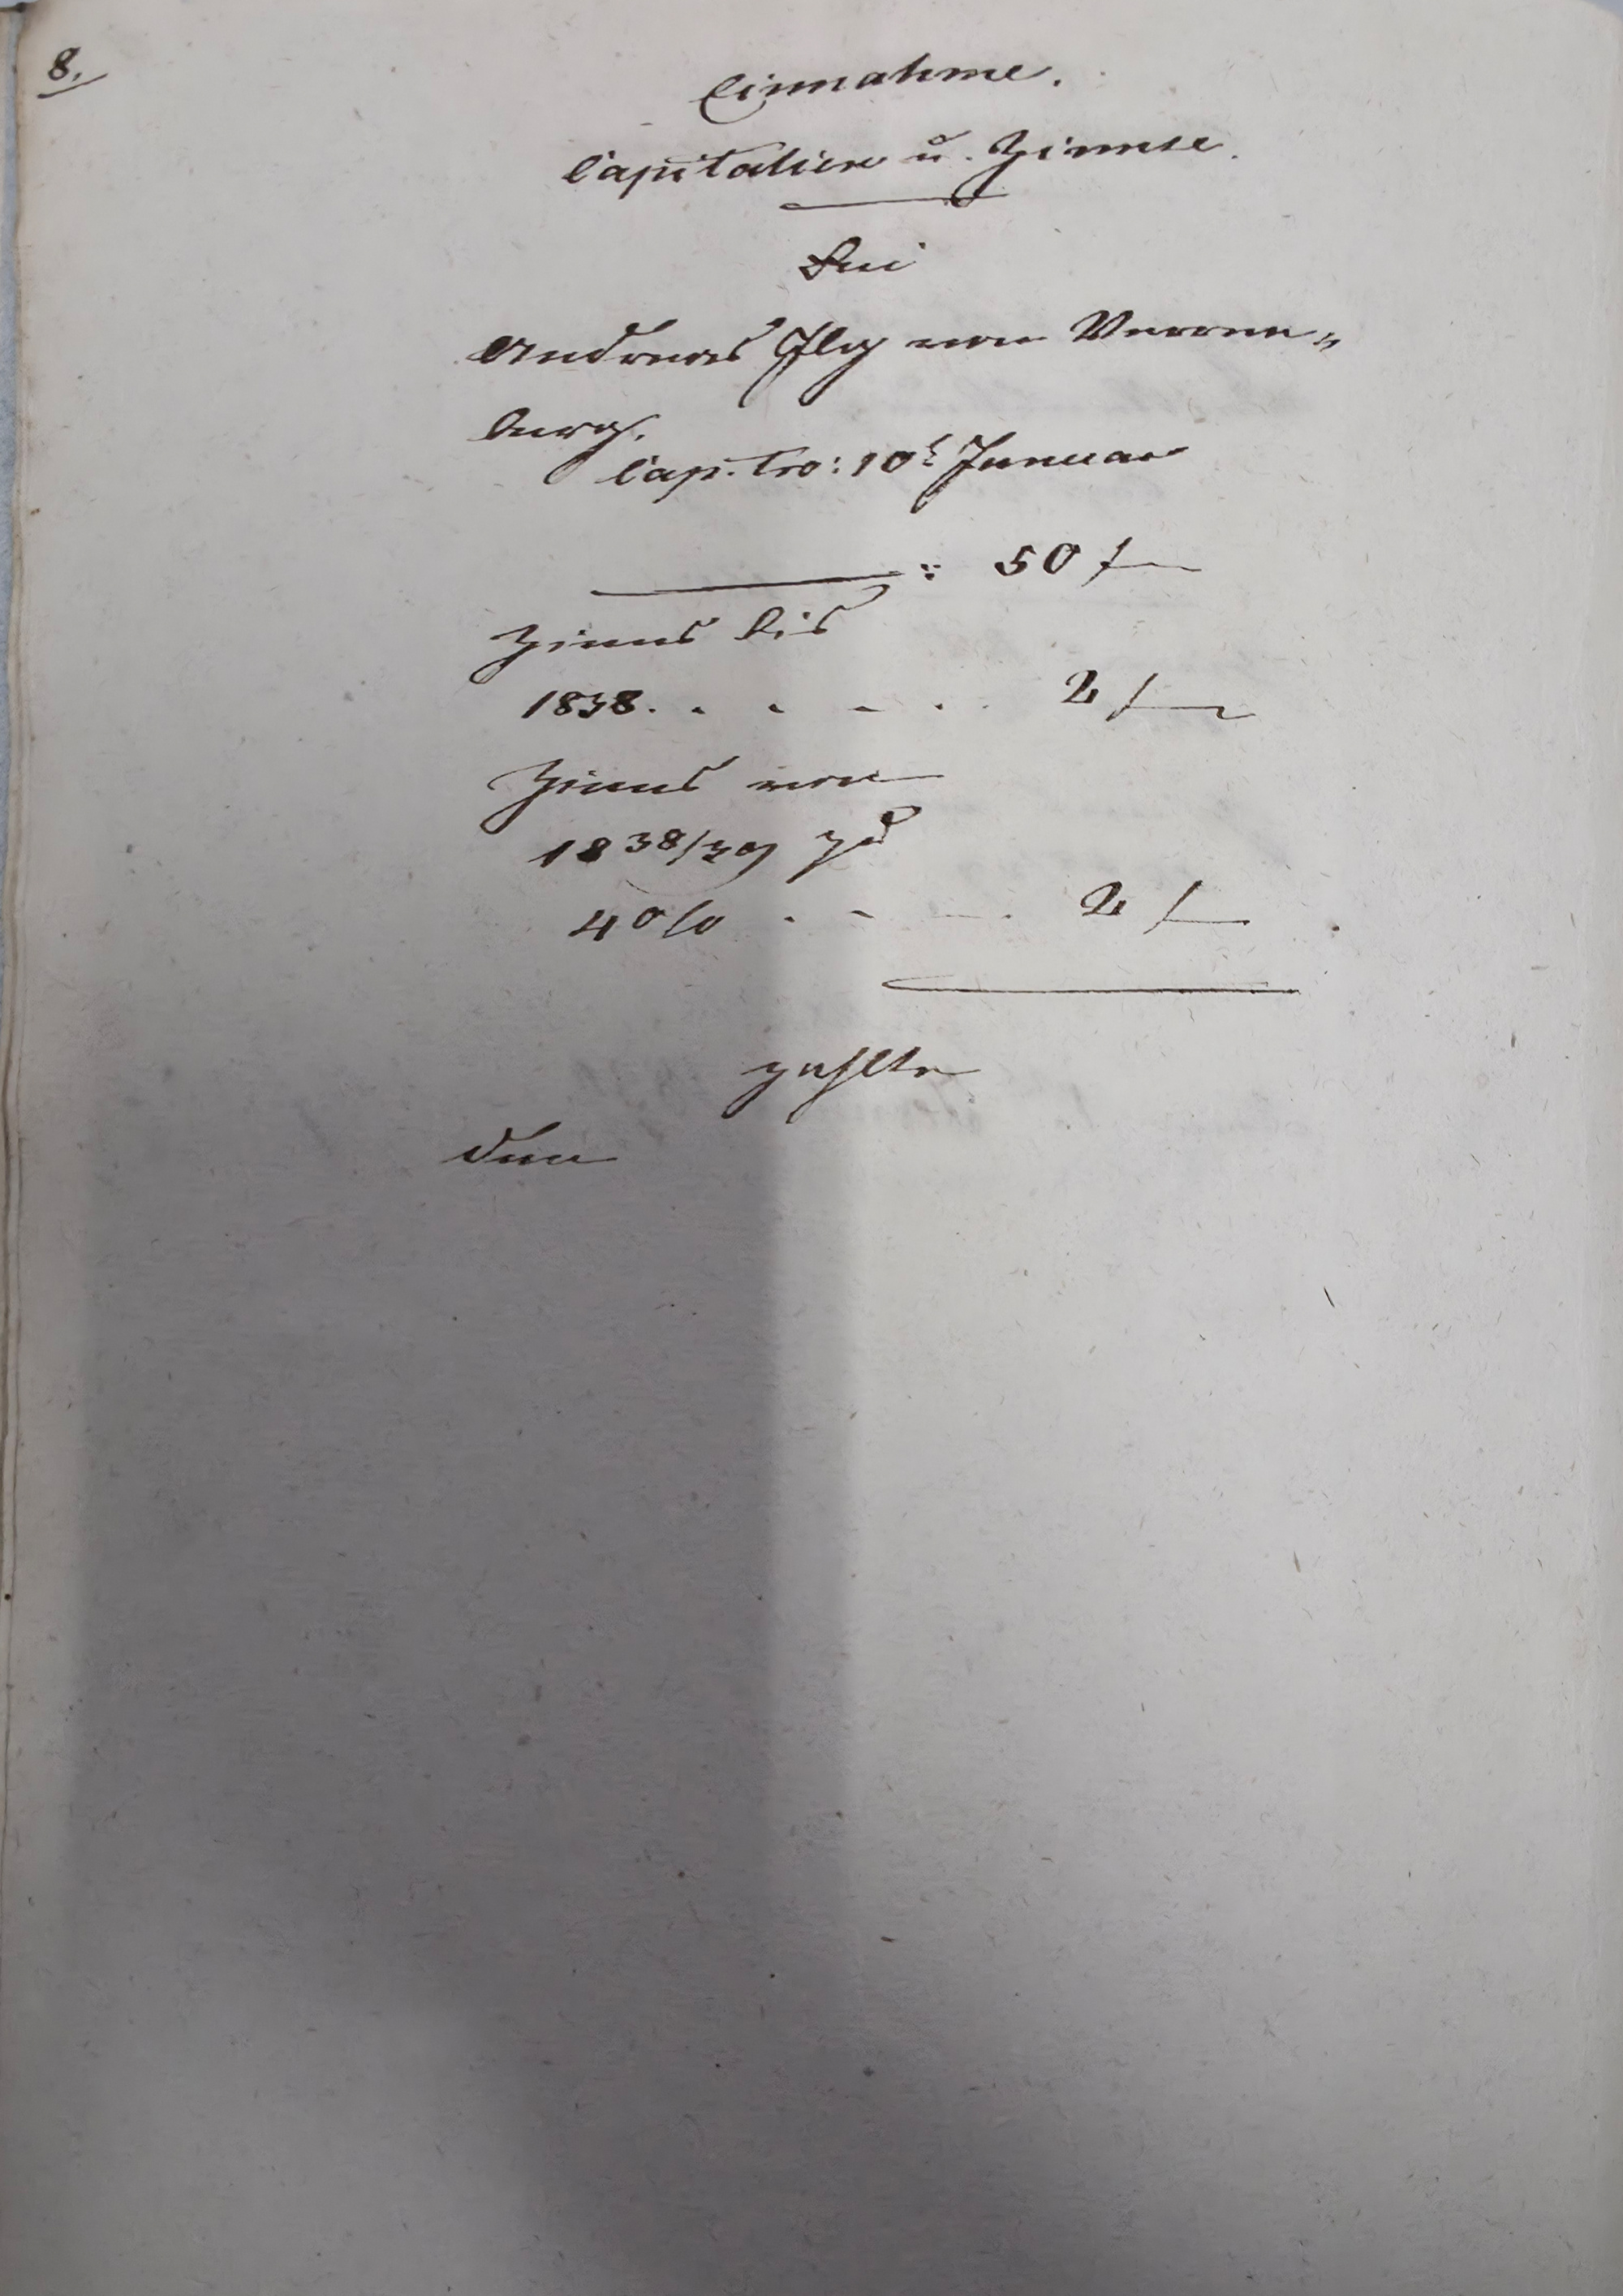 8.
Einnahme.
Capitalien u. Zinnse.
Bei
Andreas Ilg von Verren„
berg.
Cap. tro: 10t Januar
: 50 f
Zinns bis
1838. . . . . . 2 f
Zinns von
1838/39 zu
4 0/0 . . . . 2 f
zahlte
den